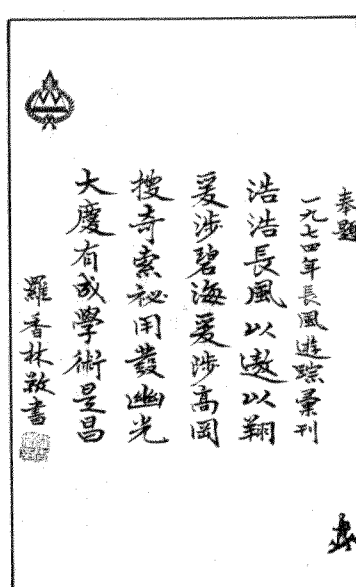 奉題
一九七四年長風遊踪彙刊
浩浩長風以遨以翔
爰涉碧海爰涉高岡
搜奇索祕用發幽光
大慶有成學術是昌
羅香林敬書